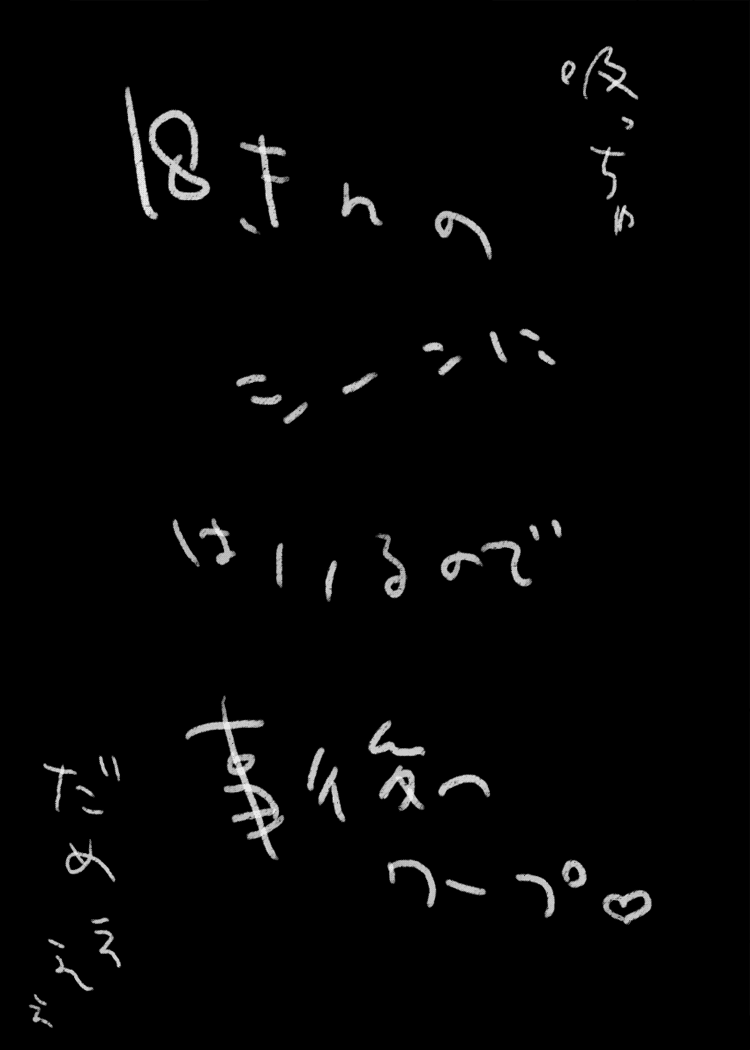 吸っちゃ
18きんの
シーンに
はいるので
事後へ
ワープ♡
だめ
ぇぇぇ